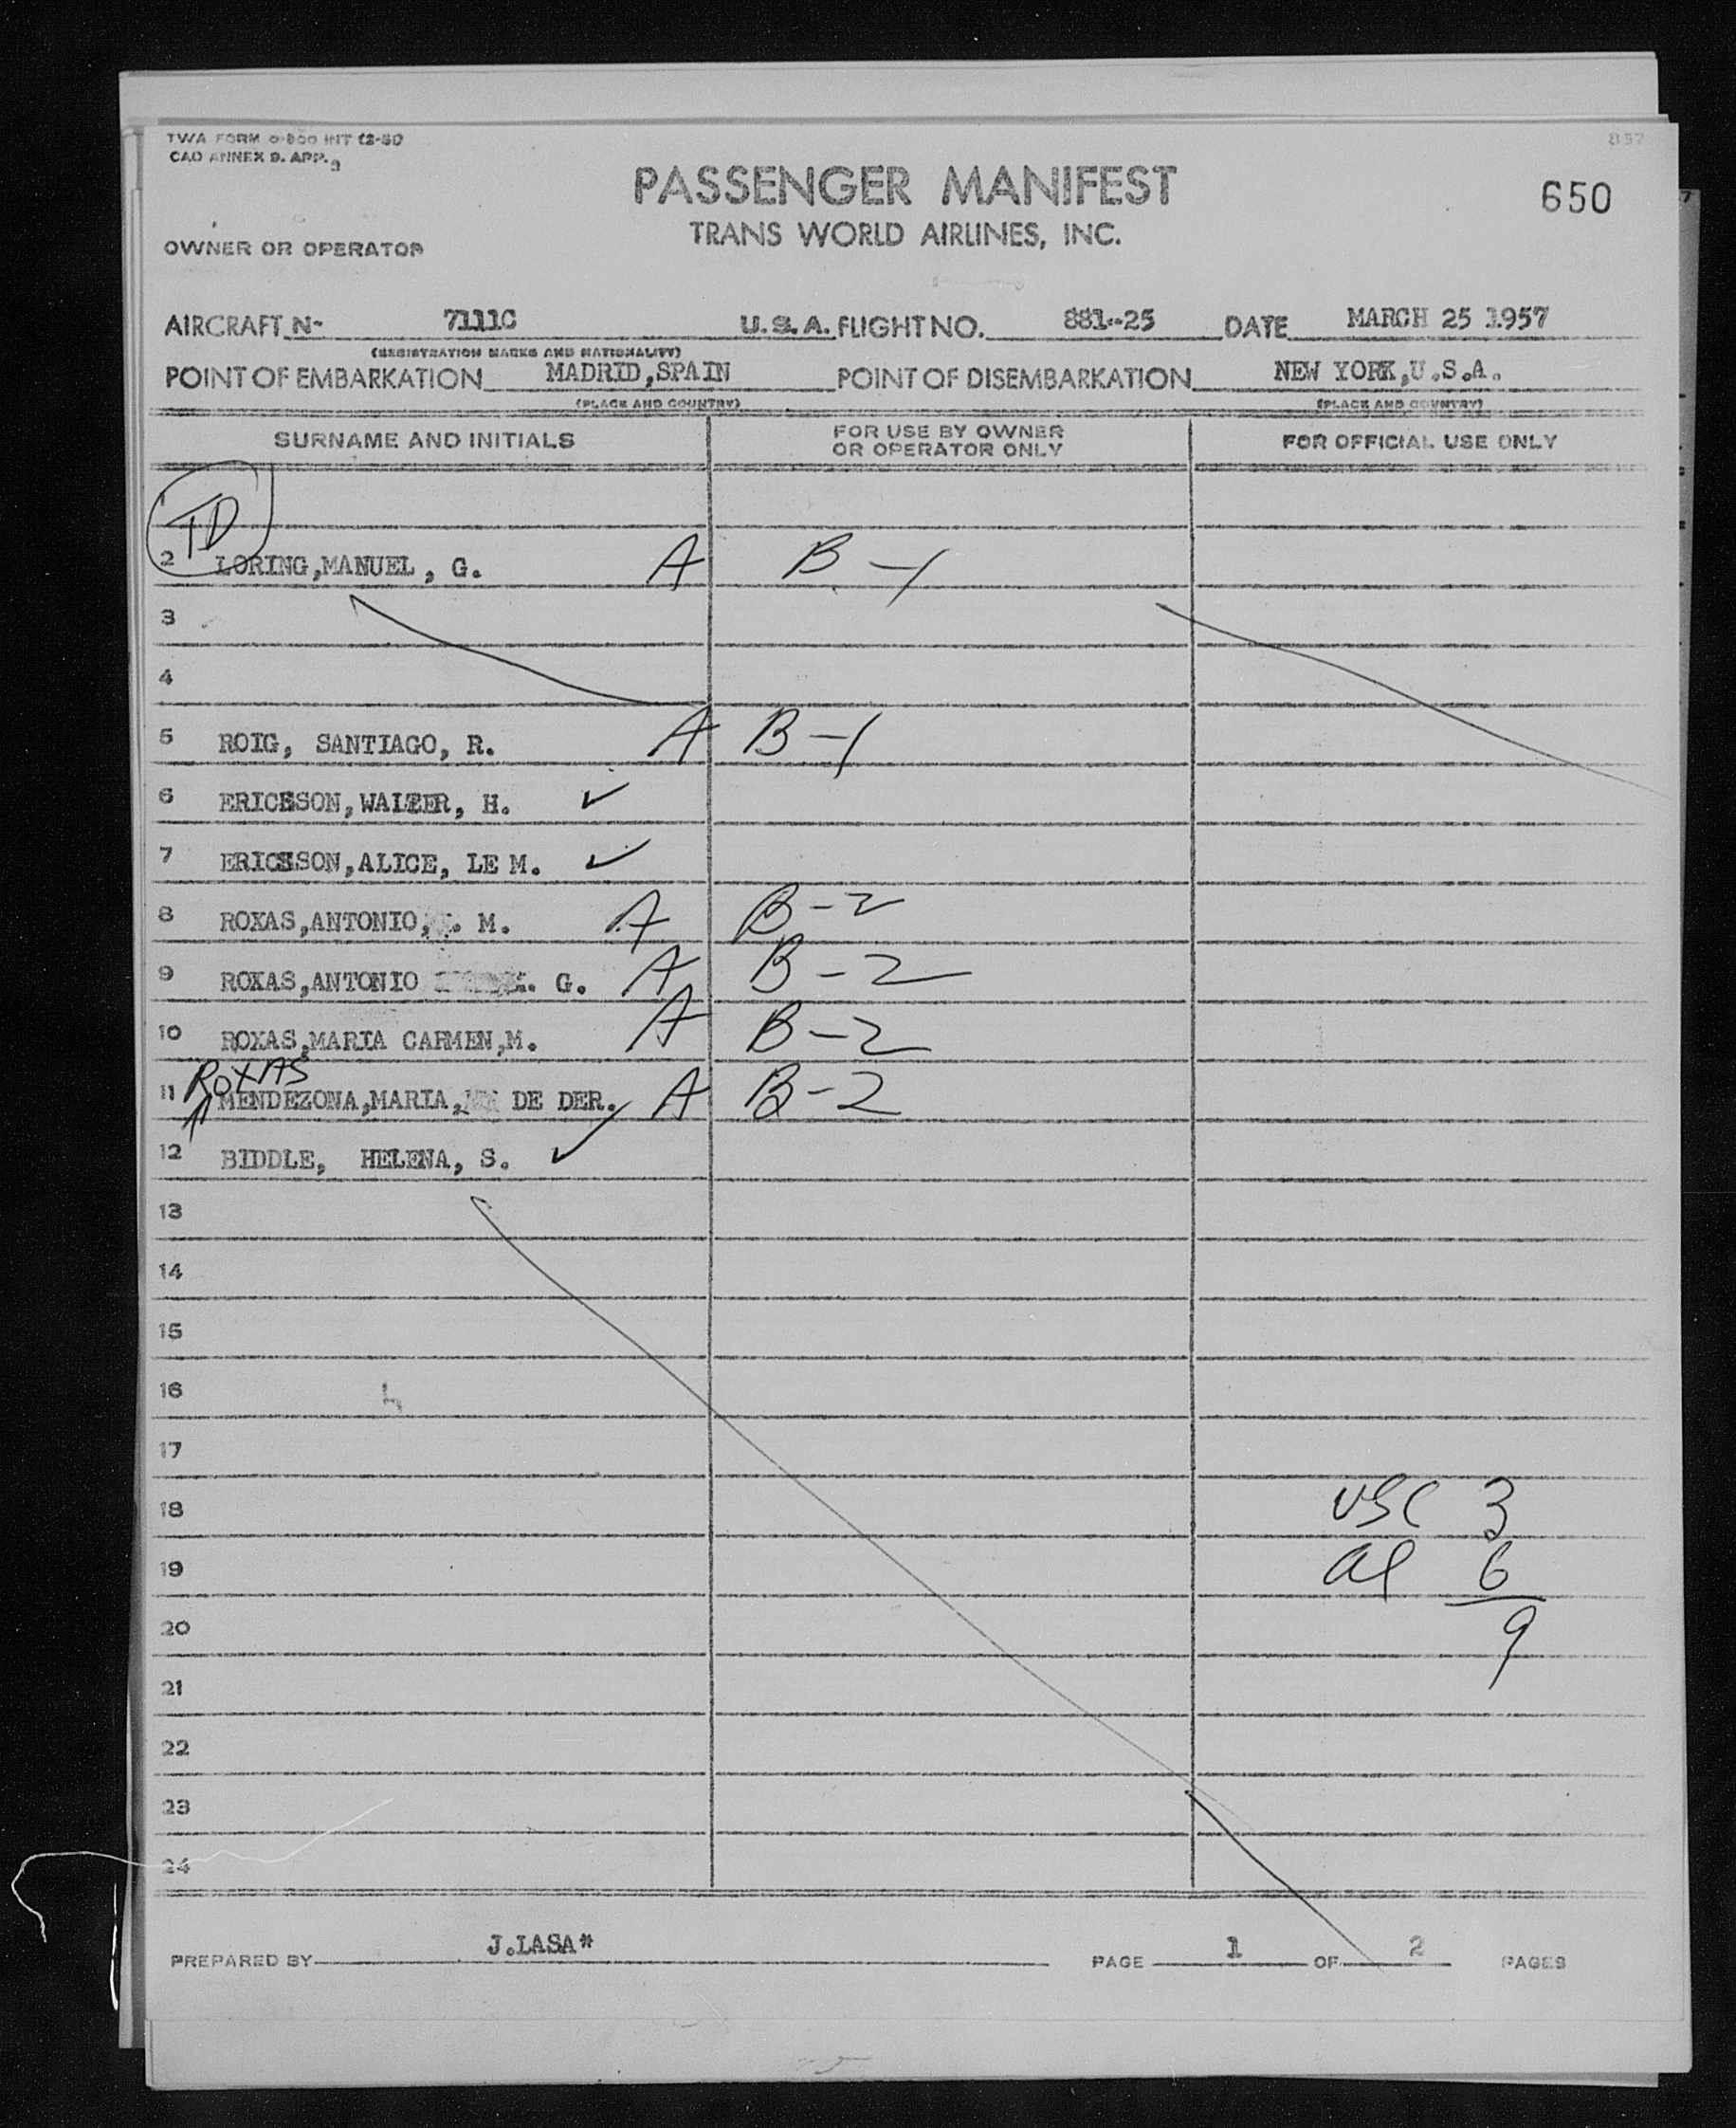 TWA FORM 0-800 INT (2-51)
CAO ANNEX 9. APP. 3
PASSENGER MANIFEST
650
TRANS WORLD AIRLINES, INC.
OWNER OR OPERATOR
AIRCRAFT N- 7111C U.S.A. FLIGHT NO. 881-25 DATE MARCH 25 1957
(REGISTRATION MARKS AND NATIONALITY)
POINT OF EMBARKATION MADRID,SPAIN POINT OF DISEMBARKATION NEW YORK,U.S.A.
(PLACE AND COUNTRY) (PLACE AND COUNTRY)
SURNAME AND INITIALS FOR USE BY OWNER OR OPERATOR ONLY FOR OFFICIAL USE ONLY
TD
2 LORING,MANUEL, G. A B-1
3
4
5 ROIG, SANTIAGO, R. A B-1
6 ERICSSON,WALTER, H. ✓
7 ERICSSON,ALICE, LE M. ✓
8 ROXAS,ANTONIO, M. A B-2
9 ROXAS,ANTONIO G. A B-2
10 ROXAS,MARIA CARMEN,M. A B-2
ROXAS
11 MENDEZONA,MARIA, DE DER. A B-2
12 BIDDLE, HELENA, S. ✓
13
14
15
16
17
18 USC 3
19 al 6
20 9
21
22
23
24
PREPARED BY J.LASA* PAGE 1 OF 2 PAGES